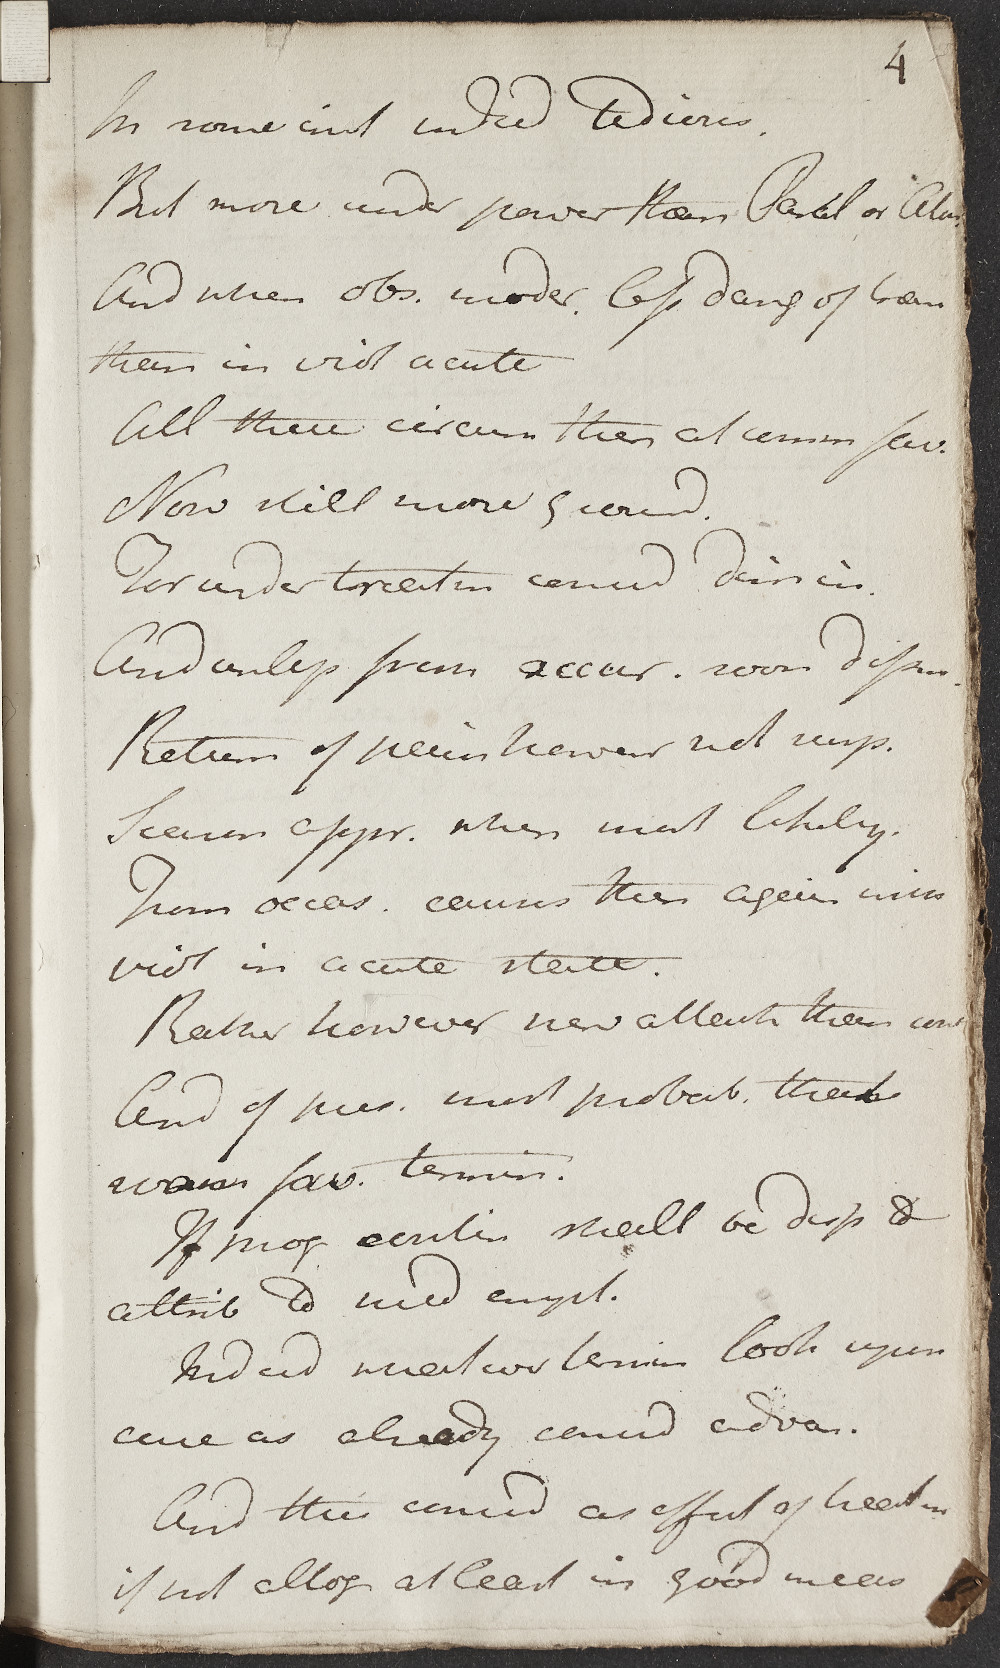 4
In some inst indeed tedious.
But more under power than Partial or
And when obs. moder. less dang of haem
than in viol acute
All these circum then at comm fav.
Now still more ground.
For under treatm consid dimin.
And unless from occur. soon
Return of pain however not
Season appr. when most likely.
From occas. causes then again
viol in acute state.
Rather however new attack than
And of pres. most probab. that
soon fav. termin.
If prog contin shall be disp to
attrib to med empl.
Indeed whatever termin look upon
case as already consid advan.
And this consid as effect of treatm
if not altog at least in good meas